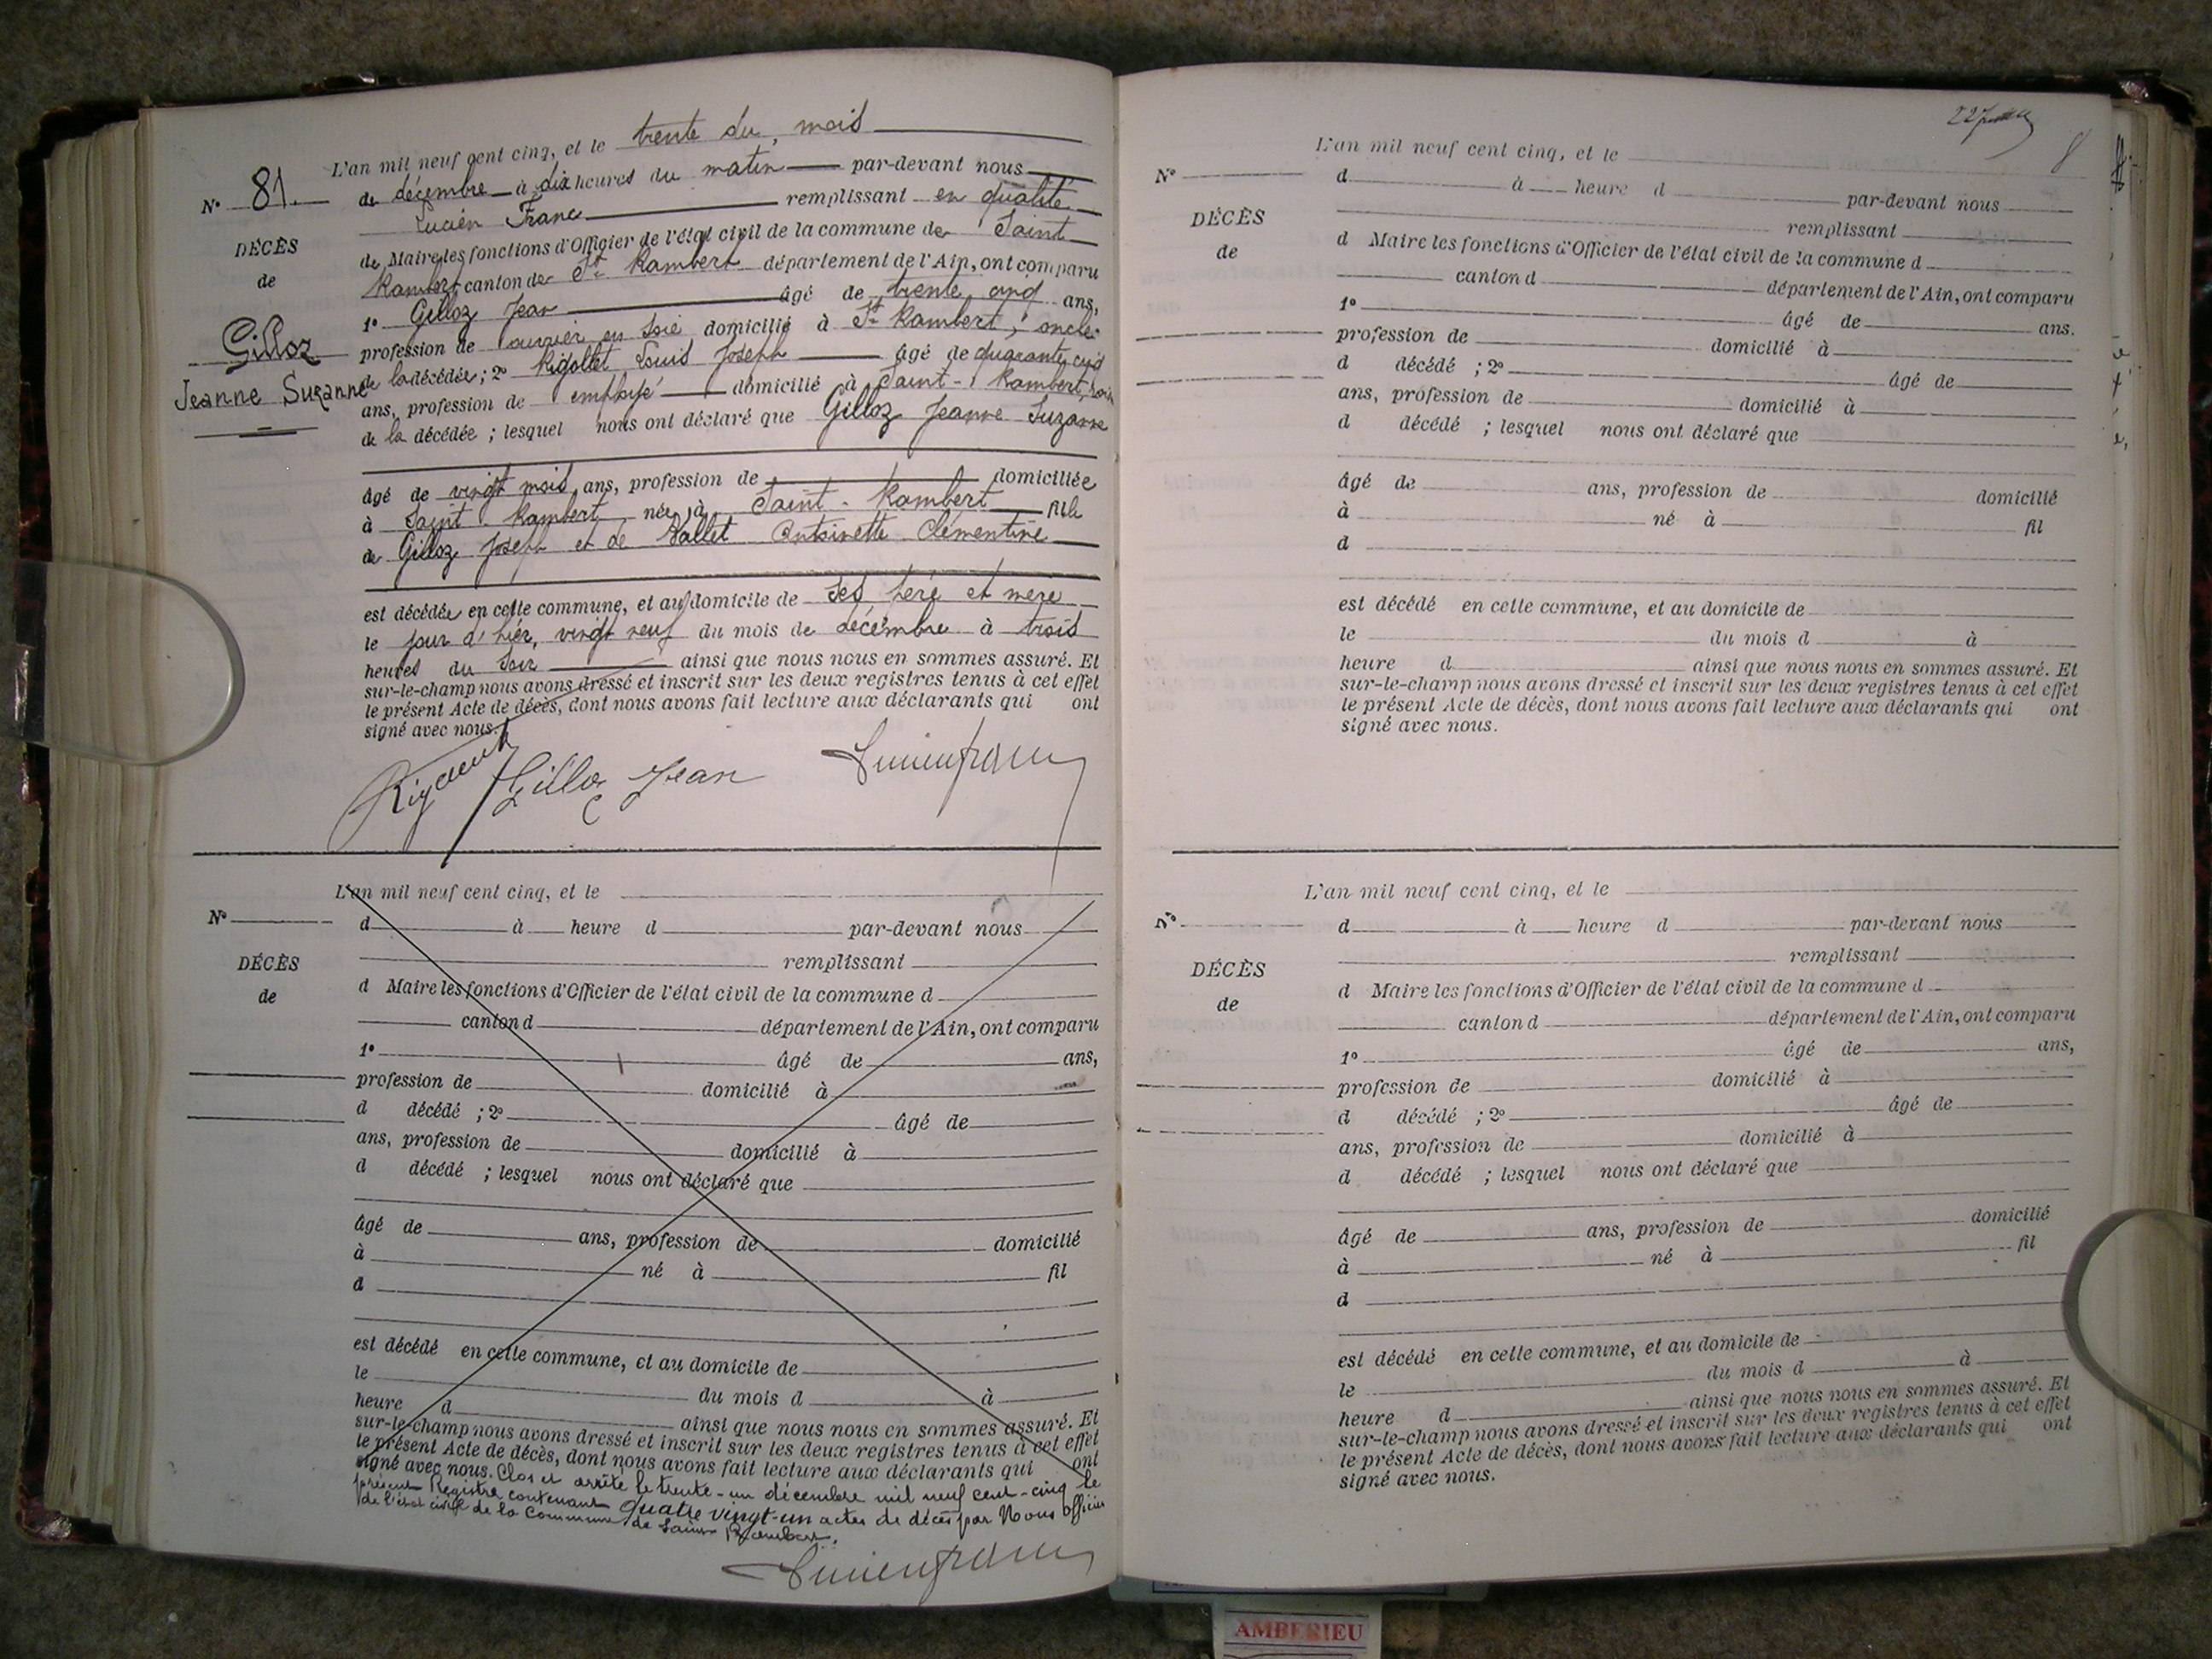 L'an mil neuf cent cinq, et le trente du mois
N° 81. de décembre à dix heures du matin par-devant nous
Lucien Franc remplissant en qualité
DÉCÈS
de Maire les fonctions d'Officier de l'état civil de la commune de Saint
de
Rambert canton de St Rambert département de l'Ain, ont comparu
1° Gilloz Jean âgé de trente cinq ans,
Gilloz
profession de ouvrier en soie domicilié à St Rambert, oncle
Jeanne Suzanne
de la décédée ; 2° Louis Joseph âgé de quarante cinq
ans, profession de employé domicilié à Saint-Rambert,
de la décédée ; lesquel nous ont déclaré que Gilloz Jeanne Suzanne
âgé de vingt mois ans, profession de domiciliée
à Saint-Rambert née à Saint-Rambert fille
de Gilloz Joseph et de Antoinette Clémentine
est décédée en cette commune, et au domicile de ses père et mère
le jour d'hier, vingt neuf du mois de décembre à trois
heures du soir ainsi que nous nous en sommes assuré. Et
sur-le-champ nous avons dressé et inscrit sur les deux registres tenus à cet effet
le présent Acte de décès, dont nous avons fait lecture aux déclarants qui ont
signé avec nous.
Gilloz Jean Lucien Franc
L'an mil neuf cent cinq, et le
N° d à heure d par-devant nous
remplissant
DÉCÈS
d Maire les fonctions d'Officier de l'état civil de la commune d
de
canton d département de l'Ain, ont comparu
1° âgé de ans,
profession de domicilié à
d décédé ; 2° âgé de
ans, profession de domicilié à
d décédé ; lesquel nous ont déclaré que
âgé de ans, profession de domicilié
à né à fil
d
est décédé en cette commune, et au domicile de
le du mois d à
heure d ainsi que nous nous en sommes assuré. Et
sur-le-champ nous avons dressé et inscrit sur les deux registres tenus à cet effet
le présent Acte de décès, dont nous avons fait lecture aux déclarants qui ont
signé avec nous. Clos et arrêté le trente-un décembre mil neuf cent-cinq le
présent Registre contenant quatre vingt-un actes de décès par Nous officier
de l'état civil de la Commune de Saint Rambert.
Lucien Franc
L'an mil neuf cent cinq, et le
N° d à heure d par-devant nous
remplissant
DÉCÈS
d Maire les fonctions d'Officier de l'état civil de la commune d
de
canton d département de l'Ain, ont comparu
1° âgé de ans.
profession de domicilié à
d décédé ; 2° âgé de
ans, profession de domicilié à
d décédé ; lesquel nous ont déclaré que
âgé de ans, profession de domicilié
à né à fil
d
est décédé en cette commune, et au domicile de
le du mois d à
heure d ainsi que nous nous en sommes assuré. Et
sur-le-champ nous avons dressé et inscrit sur les deux registres tenus à cet effet
le présent Acte de décès, dont nous avons fait lecture aux déclarants qui ont
signé avec nous.
L'an mil neuf cent cinq, et le
N° d à heure d par-devant nous
remplissant
DÉCÈS
d Maire les fonctions d'Officier de l'état civil de la commune d
de
canton d département de l'Ain, ont comparu
1° âgé de ans,
profession de domicilié à
d décédé ; 2° âgé de
ans, profession de domicilié à
d décédé ; lesquel nous ont déclaré que
âgé de ans, profession de domicilié
à né à fil
d
est décédé en cette commune, et au domicile de
le du mois d à
heure d ainsi que nous nous en sommes assuré. Et
sur-le-champ nous avons dressé et inscrit sur les deux registres tenus à cet effet
le présent Acte de décès, dont nous avons fait lecture aux déclarants qui ont
signé avec nous.
AMBERIEU